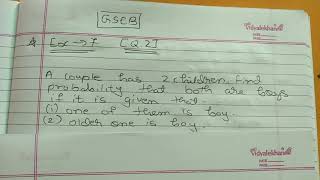 GSEB
Vidyalekhan
DATE
PAGE
Ex → 7 [Q.2]
A couple has 2 children. Find
probability that both are boys
if it is given that
(1) one of them is boy.
(2) older one is boy.
Vidyalekhan
DATE
PAGE